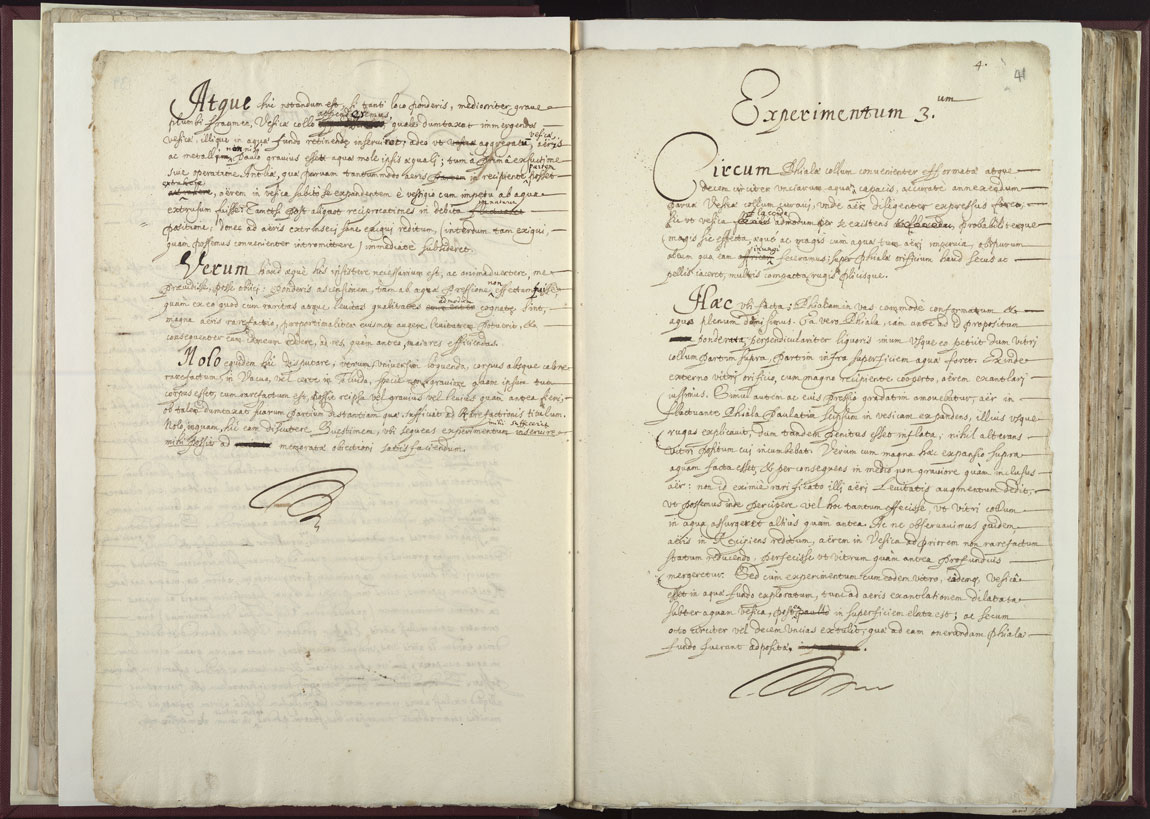 Atque hic notandum est, si tanti loco ponderis, mediocriter grave
plumbi fragmen, Vesicæ collo appenderemus, quale dumtaxat immergendæ
vesicæ, illique in aquæ fundo retinendæ inserviret, adeo ut vesicæ aggregatũ, aëris
ac metalliq; non nisi paulo gravius esset aquæ mole ipsis æquali; tum a prima exsuctione
sive operatione Antliæ, quæ parvam tantummodo aëris partem in recipiente posset
extrahere, aërem in vesica subito se expandentem è vestigio cum impetu ab aqua
extrusum fuisse: Tametsi post aliquot reciprocationes in debita
positione, donec ad aëris extrinseci sane exigui reditum, (interdum tam exigui,
quam possemus convenienter intromittere) immediatè subsideret.
Verum haud æquè his insistere necessarium est, ac animadvertere, me
prævidisse, posse obijci; ponderis ascensionem, tam ab aquæ Pressione non effectam fuisse,
quam ex eo quod cum raritas atque levitas qualitates admodum cognatæ sint,
magna aëris rarefactio, proportionaliter eiusmet augere levitatem potuerit, &
consequenter eam idoneum redere, ad res, quàm antea, maiores efficiendas.
Nolo equidem hic disputare, utrum universim loquendo, corpus absque calore
rarefactum, in Vacuo, vel certe in Fluido, specie non graviore quàm ipsum tum
corpus esset, cum rarefactum est, possit reipsa vel gravius vel levius quàm antea fieri,
ob talem dumtaxat suarum partium distantiam quæ sufficiat ad rarefactionis titulum.
Nolo, inquam, hic eam discutere Quæstionem, ubi sequens experimentum mihi suffecerit
ad memoratæ obiectioni satisfaciendum.
4.
41
Experimentum 3.um
Circum Phialæ collum convenienter efformatæ atque
decem circiter unciarum aquæ capacis, accuratè annexendum
parvæ Vesicæ collum curavi, unde aër diligenter expressus
sic ut vesica placide admodum per se existens, probabiliterque
magis sic effecta, æquè ac magis cum aquæ tum aëri impervia, obstructum
oleum quo eam inungi feceramus: super Phialæ orificium haud secus ac
pellis iaceret, multis compacta rugis plicisque.
Hæc ubi facta; Phialam in vas commodè conformatum &
aqua plenum demisimus. Ea vero Phiala, iam ante ad id propositum
ponderata, perpendiculariter liquoris imum usque eo petiit dum vitri
collum partim supra, partim infra superficiem aquæ foret. Exinde
externo vitri orificio, cum magno recipiente cooperto, aërem exantlari
iussimus. Simul autem ac eius pressio gradatim amovebitur, aër in
fluctuante Phiala paulatim seipsum in vesicam expandens, illius usque
rugas explicavit, dum tandem penitus esset inflata; nihil alterans
vitri positum cui incumbebat. Verum cum magna hæc expansio supra
aquam facta esset, & per consequens in medio non graviore quàm inclusus
aër: non id eximiè rarificato illi aëri levitatis augmentum dedit,
ut possemus inde percipere vel hoc tantum effecisse, ut vitri collum
in aqua assurgeret altius quam antea. Ac ne observavimus quidem
aëris in Recipiens reditum, aërem in Vesica ad priorem non rarefactum
statum reducendo, perfecisse ut vitrum quàm antea profundius
mergeretur. Sed cùm experimentum cum eodem vitro, eademq; vesica
esset in aquæ fundo exploratum, tunc ad aëris exantlationem dilatata
subter aquam vesica, in superficiem elata est; ac secum
octo circiter vel decem uncias extulit, quæ ad eam onerandam Phialæ
fundo fuerunt adpositæ.